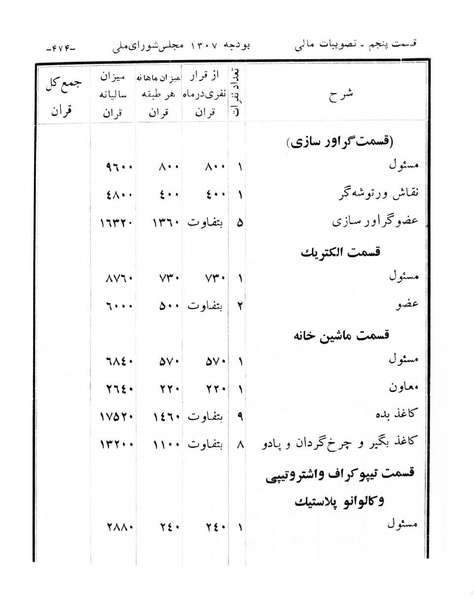 قسمت پنجم - تصویبات مالی بودجه ۱۳۰۷ مجلس‌شورای‌ملی -۴۷۴-
شرح تعداد نفرات از قرار نفری‌درماه قران میزان ماهانه هر طبقه قران میزان سالیانه قران جمع کل قران
(قسمت گراور سازی)
مسئول ۱ ۸۰۰ ۸۰۰ ۹۶۰۰
نقاش ورتوشه‌گر ۱ ۴۰۰ ۴۰۰ ۴۸۰۰
عضو گراور سازی ۵ بتفاوت ۱۳۶۰ ۱۶۳۲۰
قسمت الکتریك
مسئول ۱ ۷۳۰ ۷۳۰ ۸۷۶۰
عضو ۲ بتفاوت ۵۰۰ ۶۰۰۰
قسمت ماشین خانه
مسئول ۱ ۵۷۰ ۵۷۰ ۶۸۴۰
معاون ۱ ۲۲۰ ۲۲۰ ۲۶۴۰
کاغذ بده ۹ بتفاوت ۱۴۶۰ ۱۷۵۲۰
کاغذ بگیر و چرخ‌گردان و پادو ۸ بتفاوت ۱۱۰۰ ۱۳۲۰۰
قسمت تیپوکراف واشتروتیپی
وکالوانو پلاستیك
مسئول ۱ ۲۴۰ ۲۴۰ ۲۸۸۰